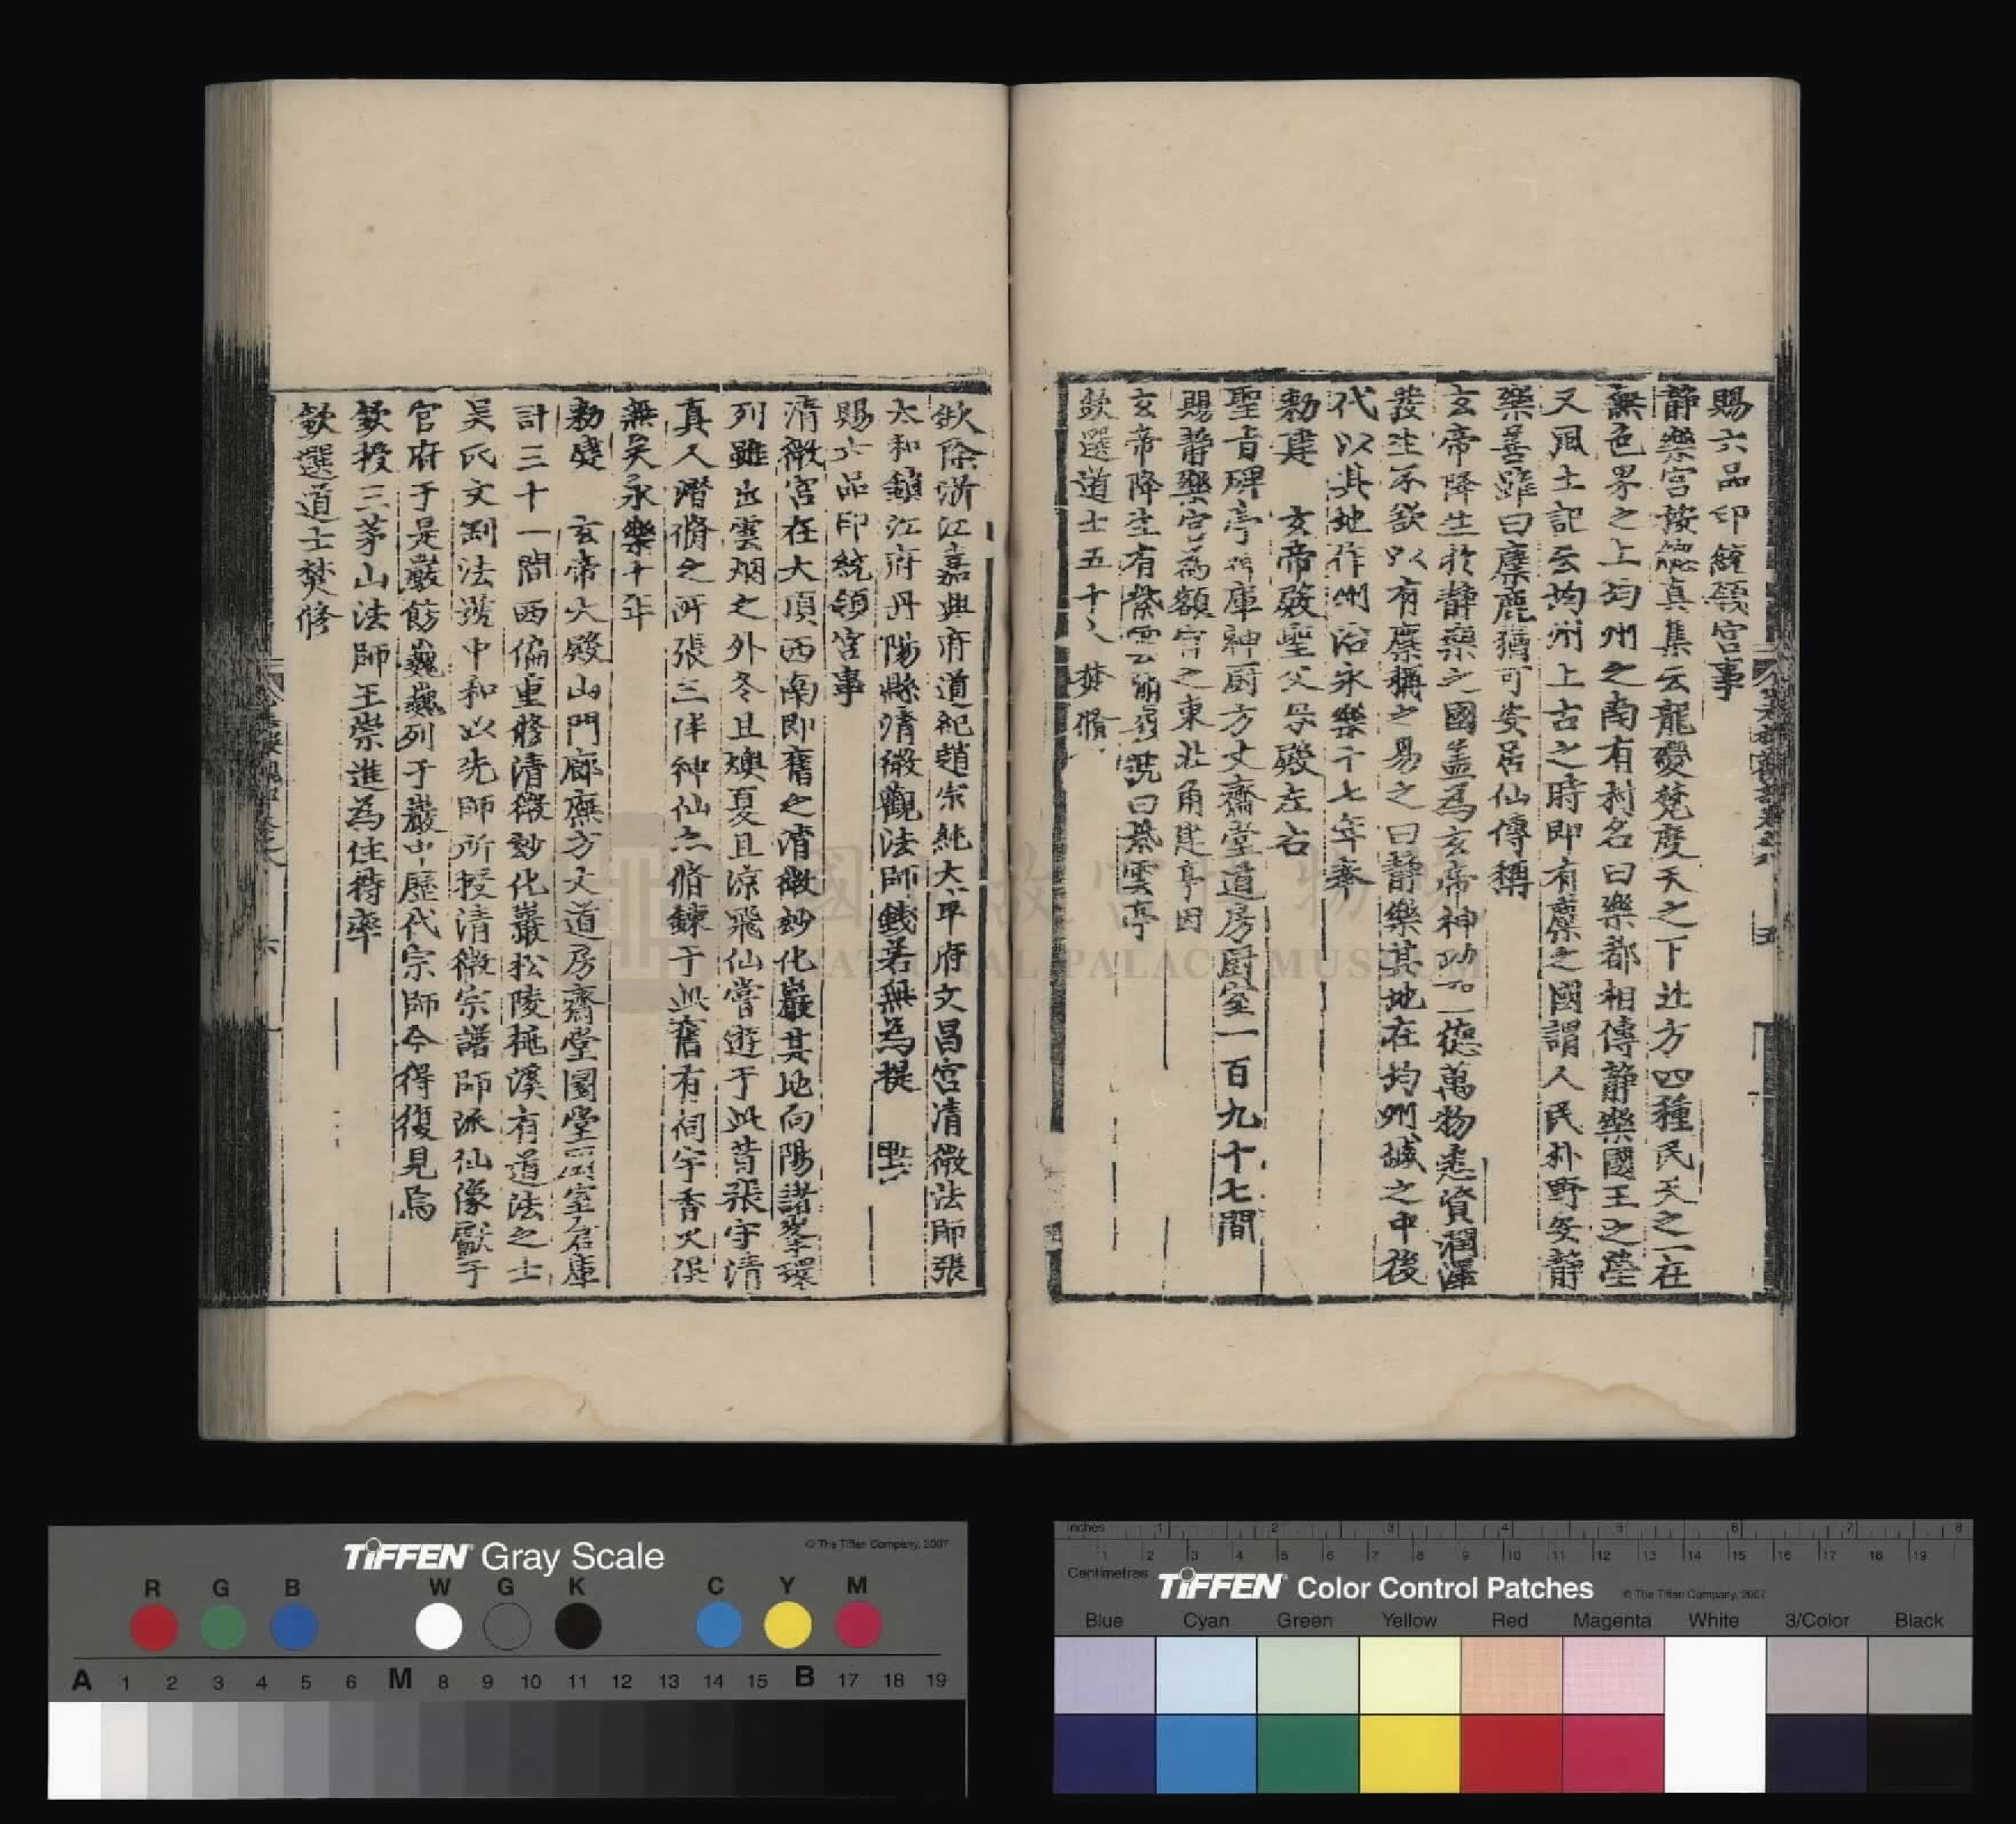 賜六品印統領宮事
靜樂宮按總真集云龍變梵度天之下北方四種民天之一在
無色界之上均州之南有利名曰樂都相傳靜樂國王之塋
又風土記云均州上古之時即有麇之國謂人民朴野安靜
樂善雖曰麋鹿猶可安居仙傳稱
玄帝降生於靜樂之國蓋為玄帝神功一德萬物悉資潤澤
發生不欲以有麇稱之易之曰靜樂其地在均州城之中後
代以其地作州治永樂十七年奉
勅建 玄帝殿聖父母殿左右
聖旨碑亭神庫神廚方丈齋堂道房廚室一百九十七間
賜靜樂宮為額宮之東北角建亭因
玄帝降生有紫雲之號曰紫雲亭
欽選道士五十人焚脩
欽除浙江嘉興府道紀趙宗純太平府文昌宮清微法師張
太和鎮江府丹陽縣清微觀法師錢若無為提 點
賜六品印統領宮事
清微宮在大頂西南即舊之清微玅化巖其地向陽諸峯環
列雖出雲烟之外冬且燠夏且涼飛仙嘗遊于此昔張守清
真人潛脩之所張三丰神仙亦脩鍊于此舊有祠宇香火俱
無矣永樂十年
勅建 玄帝大殿山門廊廡方丈道房齋堂圜堂室倉庫
計三十一間西偏重修清微玅化巖松陵桃溪有道法之士
吳氏文剛法諱中和以先師所授清微宗譜師派仙像獻于
官府于是嚴飭巍巍列于巖中歷代宗師今得復見焉
欽授三茅山法師王崇進為住持率
欽選道士焚修
六
五
TIFFEN Gray Scale
© The Tiffen Company, 2007
R G B W G K C Y M
A 1 2 3 4 5 6 M 8 9 10 11 12 13 14 15 B 17 18 19
Inches 1 2 3 4 5 6 7 8
1 2 3 4 5 6 7 8 9 10 11 12 13 14 15 16 17 18 19
Centimetres
TIFFEN Color Control Patches
© The Tiffen Company, 2007
Blue Cyan Green Yellow Red Magenta White 3/Color Black
國立故宮博物院
NATIONAL PALACE MUSEUM